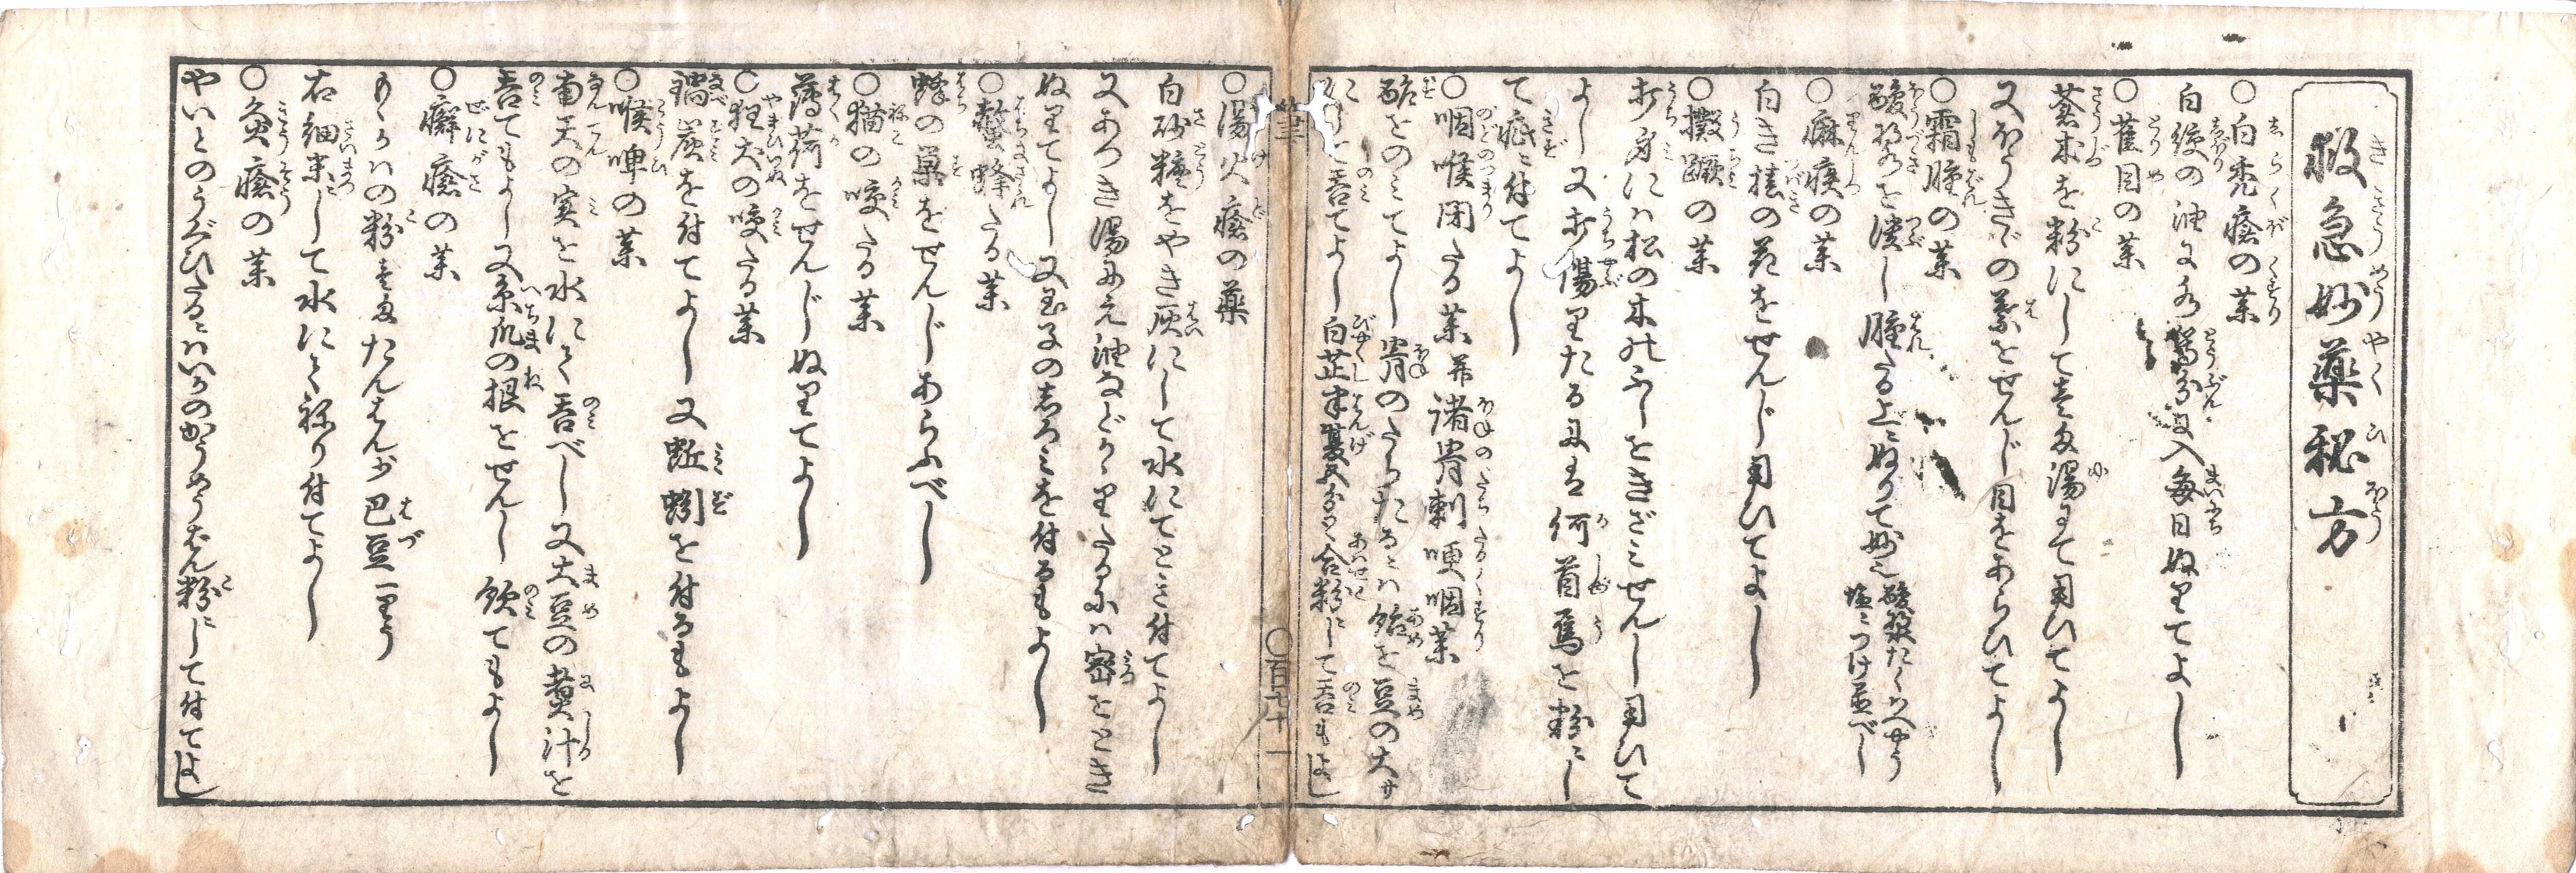 救急妙薬秘方
○白禿瘡の薬
白絞の油に水等分に入毎日ぬりてよし
○雀目の薬
蒼朮を粉にしてさゆ湯にて用ひてよし
又ほうきゞの葉をせんじ目をあらひてよし
○霜腫の薬
酸漿を潰し腫たる上にぬりて妙也
塩につけ置べし
○麻疾の薬
白き の花をせんじ用ひてよし
○撒蹶の薬
打身にハ松の木のふしをきざみせんじ用ひて
よし又打傷りたるには何首烏を粉にし
て疵に付てよし
○咽喉閉たる薬并諸骨刺哽咽薬
酢をのみてよし骨のたちたるにハ飴を豆の大サ
に 呑てよし白芷半夏 合粉にして呑もよし
○湯火瘡の薬
白砂糖をやき灰にして水にてとき付てよし
又あつき湯にえ油などかゝりたるにハ密をとき
ぬりてよし又玉子のしろみを付るもよし
○螫蜂たる薬
蜂の巣をせんじあらふべし
○猫の咬たる薬
薄荷をせんじぬりてよし
○狂犬の咬たる薬
鍋炭を付てよし又蚯蚓を付るもよし
○喉痺の薬
南天の実を水にて呑べし又大豆の煮汁を
呑てもよし又糸瓜の根をせんじ飲てもよし
○癬瘡の薬
の粉 たんはん少巴豆一りう
右細末にして水にてねり付てよし
○灸瘡の薬
やいとのうづひたるにハいかのかうめうばん粉にして付てよし
○百七十一